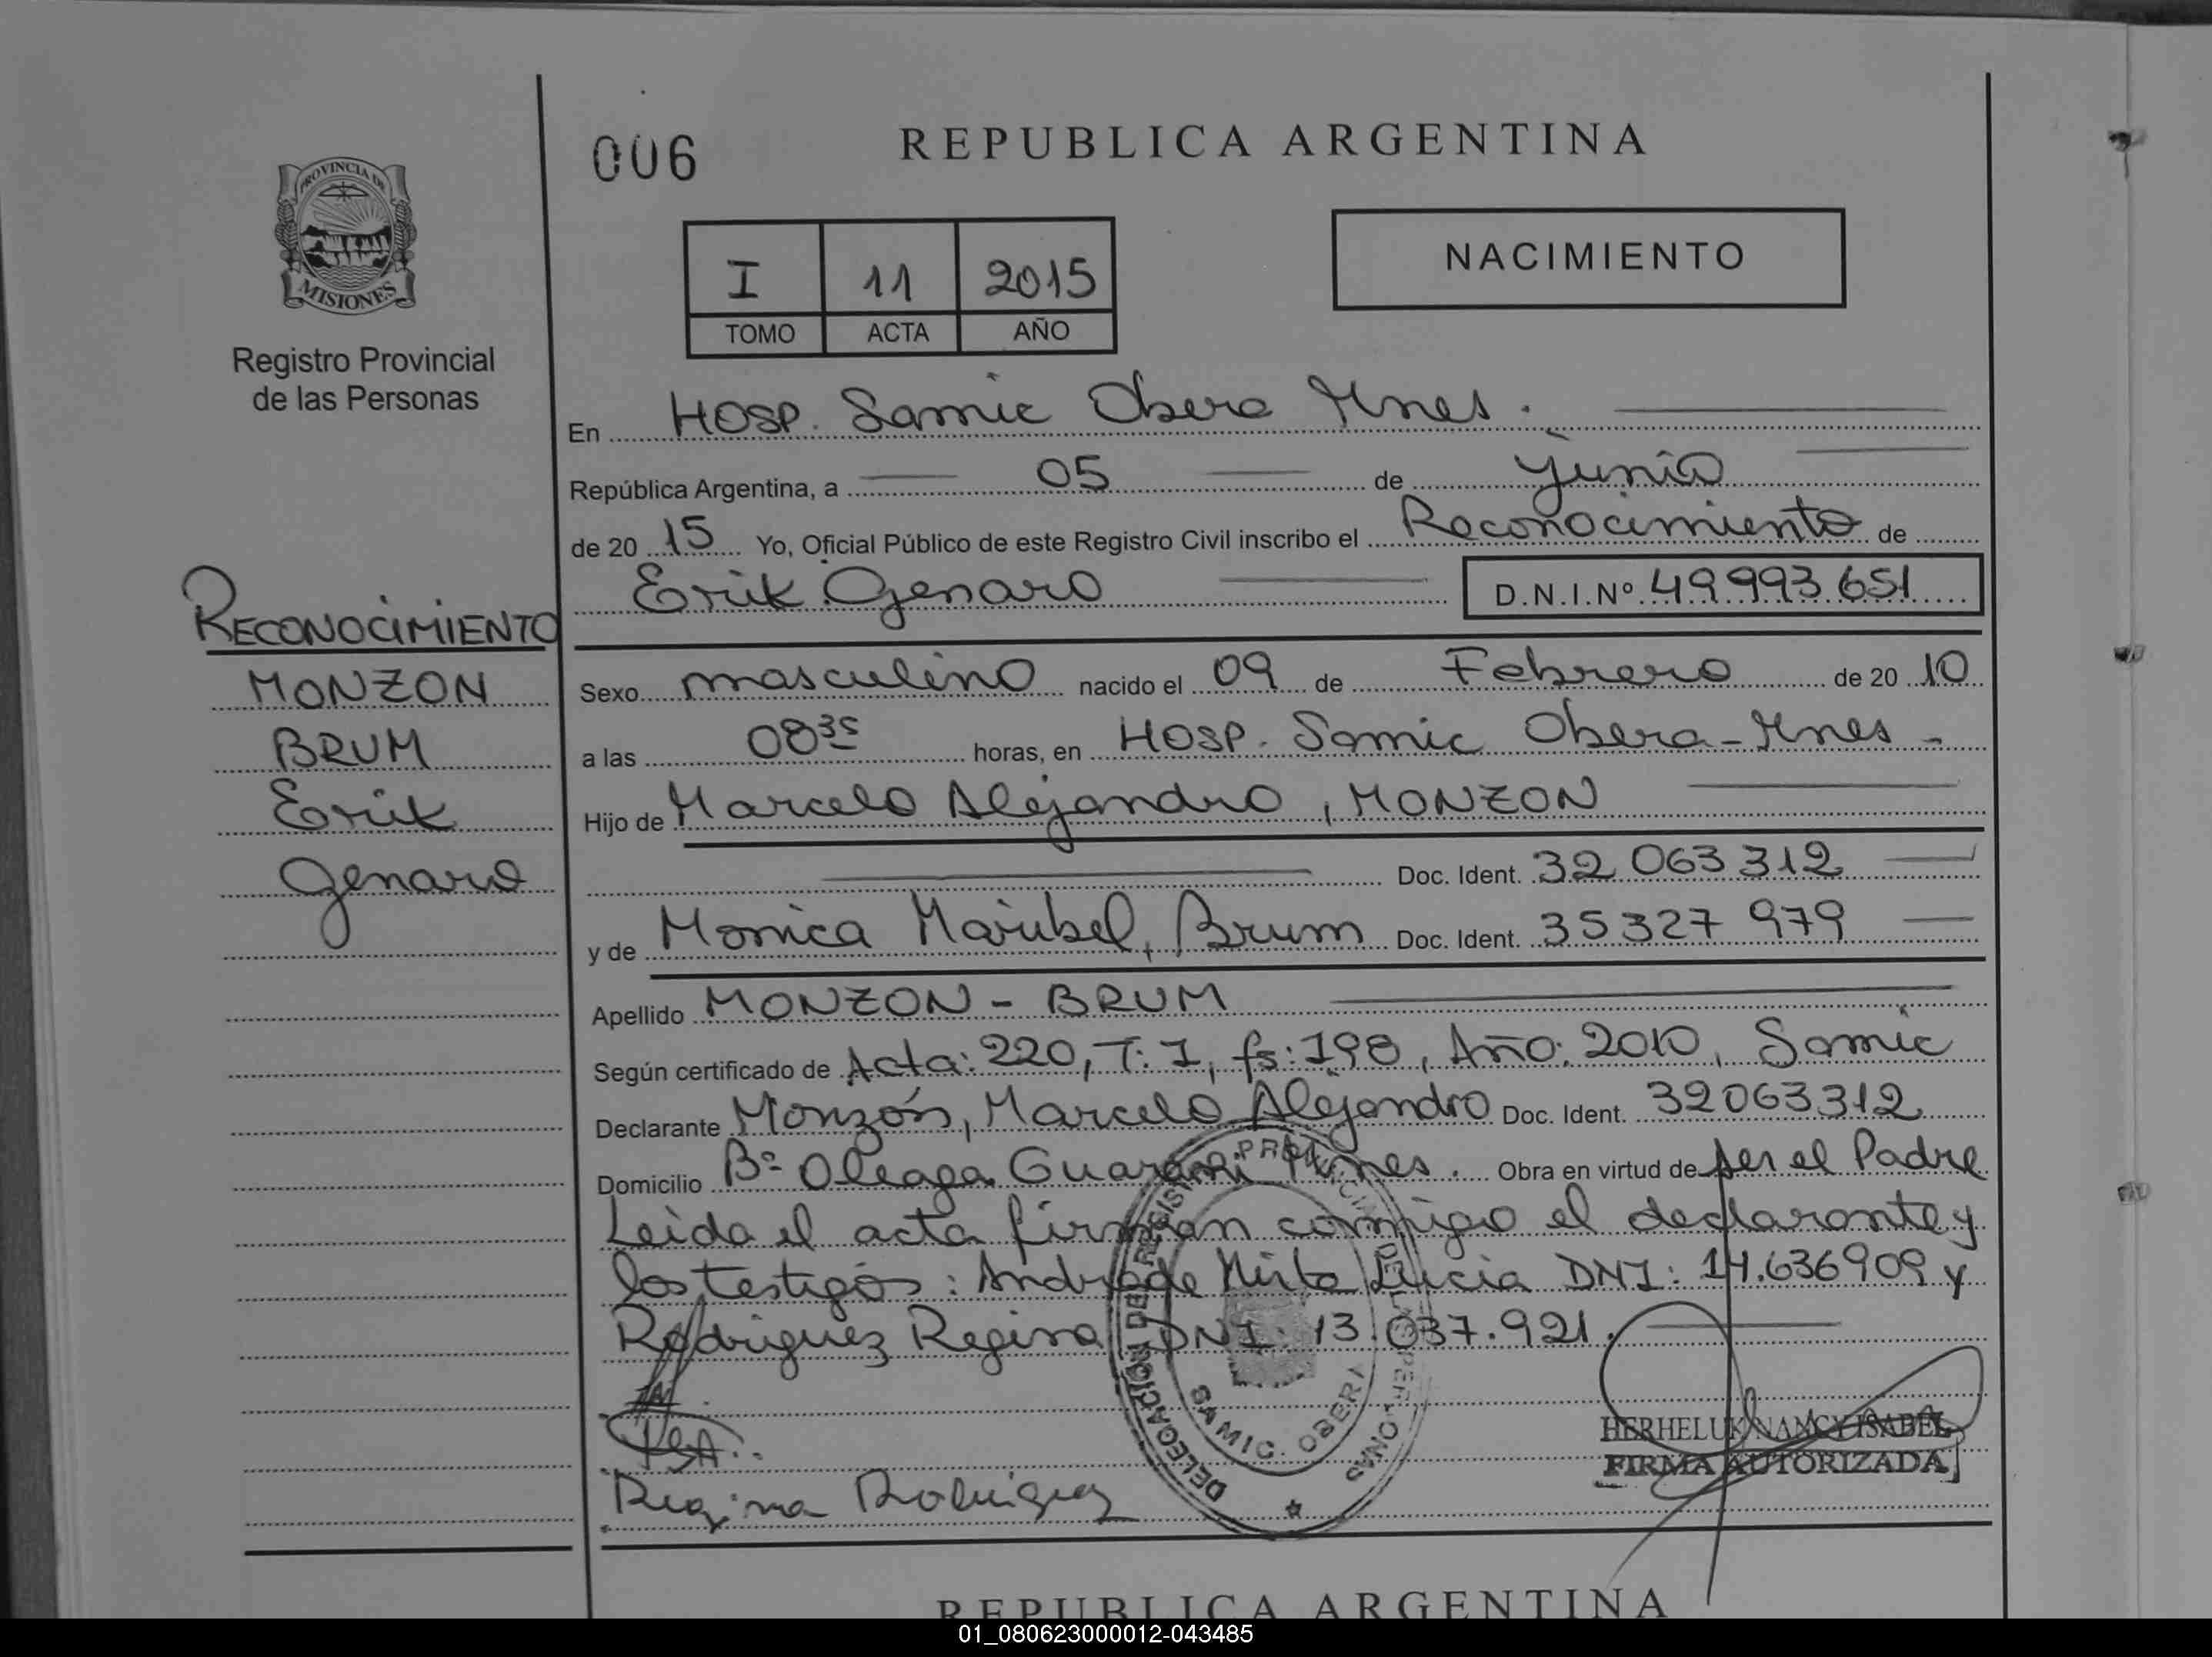 006
REPUBLICA ARGENTINA
PROVINCIA DE
MISIONES
Registro Provincial
de las Personas
NACIMIENTO
I 11 2015
TOMO ACTA AÑO
En Hosp. Samic Obera Mnes.
República Argentina, a 05 de Junio
de 20 15 Yo, Oficial Público de este Registro Civil inscribo el Reconocimiento de
Erik Genaro D.N.I.Nº 49993651
RECONOCIMIENTO
MONZON
BRUM
Erik
Genaro
Sexo masculino nacido el 09 de Febrero de 20 10
a las 08 35 horas, en Hosp. Samic Obera-Mnes -
Hijo de Marcelo Alejandro, MONZON
Doc. Ident. 32 063 312
y de Monica Maribel, Brum Doc. Ident. 35327 979
Apellido MONZON - BRUM
Según certificado de Acta: 220, T: I, fs: 198, Año: 2010, Samic
Declarante Monzón, Marcelo Alejandro Doc. Ident. 32063312
Domicilio Bº Oleaga Guarani Mnes. Obra en virtud de ser el Padre
Leida el acta firman conmigo el declarante y
los testigos: Andrade Mirta Lucia DNI: 14.636909 y
Rodriguez Regina DNI: 13.037.921.
DELEGACIÓN DEL REGISTRO PROVINCIAL DE LAS PERSONAS
SAMIC. OBERA
Regina Rodriguez
HERHELUK NANCY ISABEL
FIRMA AUTORIZADA
REPUBLICA ARGENTINA
01_080623000012-043485